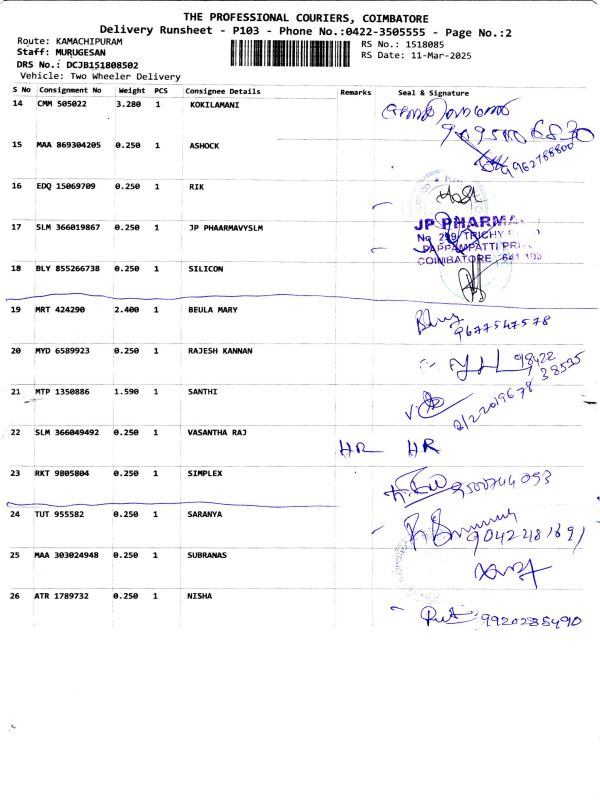 THE PROFESSIONAL COURIERS, COIMBATORE
Delivery Runsheet - P103 - Phone No.:0422-3505555 - Page No.:2
Route: KAMACHIPURAM
RS No.: 1518085
Staff: MURUGESAN
RS Date: 11-Mar-2025
DRS No.: DCJB151808502
Vehicle: Two Wheeler Delivery
S No Consignment No Weight PCS Consignee Details Remarks Seal & Signature
14 CMM 505022 3.280 1 KOKILAMANI
15 MAA 869304205 0.250 1 ASHOCK
9962788800
16 EDQ 15069709 0.250 1 RIK
17 SLM 366019867 0.250 1 JP PHAARMAVYSLM
JP PHARMA
No 219 TRICHY
PAPPAMPATTI PRI
COIMBATORE 641 103
18 BLY 855266738 0.250 1 SILICON
19 MRT 424290 2.400 1 BEULA MARY
9677547578
20 MYD 6589923 0.250 1 RAJESH KANNAN
98422 38535
21 MTP 1350886 1.590 1 SANTHI
22 SLM 366049492 0.250 1 VASANTHA RAJ HR HR
23 RKT 9805804 0.250 1 SIMPLEX
9500744053
24 TUT 955582 0.250 1 SARANYA
9042248169
25 MAA 303024948 0.250 1 SUBRANAS
26 ATR 1789732 0.250 1 NISHA
9920235490